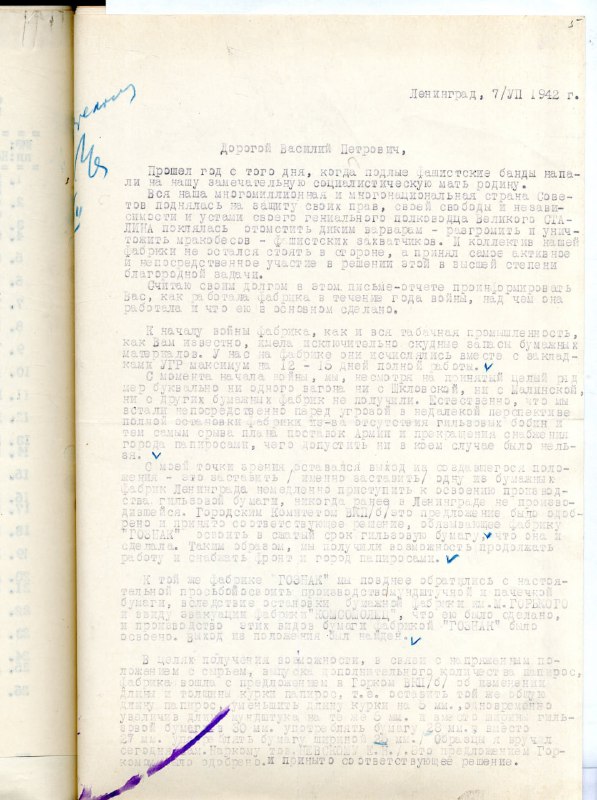 5
Ленинград, 7/УП 1942 г.
Дорогой Василий Петрович,
Прошел год с того дня, когда подлые фашистские банды напа-
ли на нашу замечательную социалистическую мать родину.
Вся наша многомиллионная и многонациональная страна Сове-
тов поднялась на защиту своих прав, своей свободы и незави-
симости и устами своего гениального полководца Великого СТА-
ЛИНА поклялась отомстить диким варварам - разгромить и унич-
тожить мракобесов - фашистских захватчиков. И коллектив нашей
фабрики не остался стоять в стороне, а принял самое активное
и непосредственное участие в решении этой в высшей степени
благородной задачи.
Считаю своим долгом в этом письме-отчете проинформировать
Вас, как работала фабрика в течение года войны, над чем она
работала и что ею в основном сделано.
К началу войны фабрика, как и вся табачная промышленность,
как Вам известно, имела исключительно скудные запасы бумажных
материалов. У нас на фабрике они исчислялись вместе с заклад-
ками УГР максимум на 12 - 15 дней полной работы.
С момента начала войны, мы, несмотря на принятый целый ряд
мер буквально ни одного вагона ни с Шкловской, ни с Малинской,
ни с других бумажных фабрик не получили. Естественно, что мы
встали непосредственно перед угрозой в недалекой перспективе
полной остановки фабрики из-за отсутствия гильзовых бобин и
тем самым срыва плана поставок Армии и прекращения снабжения
города папиросами, чего допустить ни в коем случае было нель-
зя.
С моей точки зрения оставайся выход из создавшегося поло-
жения - это заставить /именно заставить/ одну из бумажных
фабрик Ленинграда немедленно приступить к освоению производ-
ства гильзовой бумаги, никогда ранее в Ленинграде не произво-
дившейся. Городским Комитетом ВКП/б/ это предложение было одоб-
рено и принято соответствующее решение, обязывающее фабрику
"ГОЗНАК" освоить в сжатый срок гильзовую бумагу, что она и
сделала. Таким образом, мы получили возможность продолжать
работу и снабжать Фронт и город папиросами.
К той же фабрике "ГОЗНАК" мы позднее обратились с настоя-
тельной просьбой освоить производство мундштучной и пачечной
бумаги, вследствие остановки бумажной фабрики им.М.ГОРЬКОГО
и ввиду эвакуации фабрики "КОМСОМОЛЕЦ", что ею было сделано,
и производство этих видов бумаги фабрикой "ГОЗНАК" было
освоено. Выход из положения был найден.
В целях получения возможности, в связи с напряженным по-
ложением с сырьем, выпуска дополнительного количества папирос,
фабрика вошла с предложением в Горком ВКП/б/ об изменении
длины и толщины курки папирос, т.е. оставить той же общую
длину папирос, уменьшить длину курки на 5 мм., одновременно
увеличив длину мундштука на те же 5 мм. и вместо ширины гиль-
зовой бумаги 30 мм. употреблять бумагу 28 мм., вместо
27 мм. Образцы я вручил
сегодня зам.Наркому тов. это предложение Гор-
комом было одобрено и принято соответствующее решение.